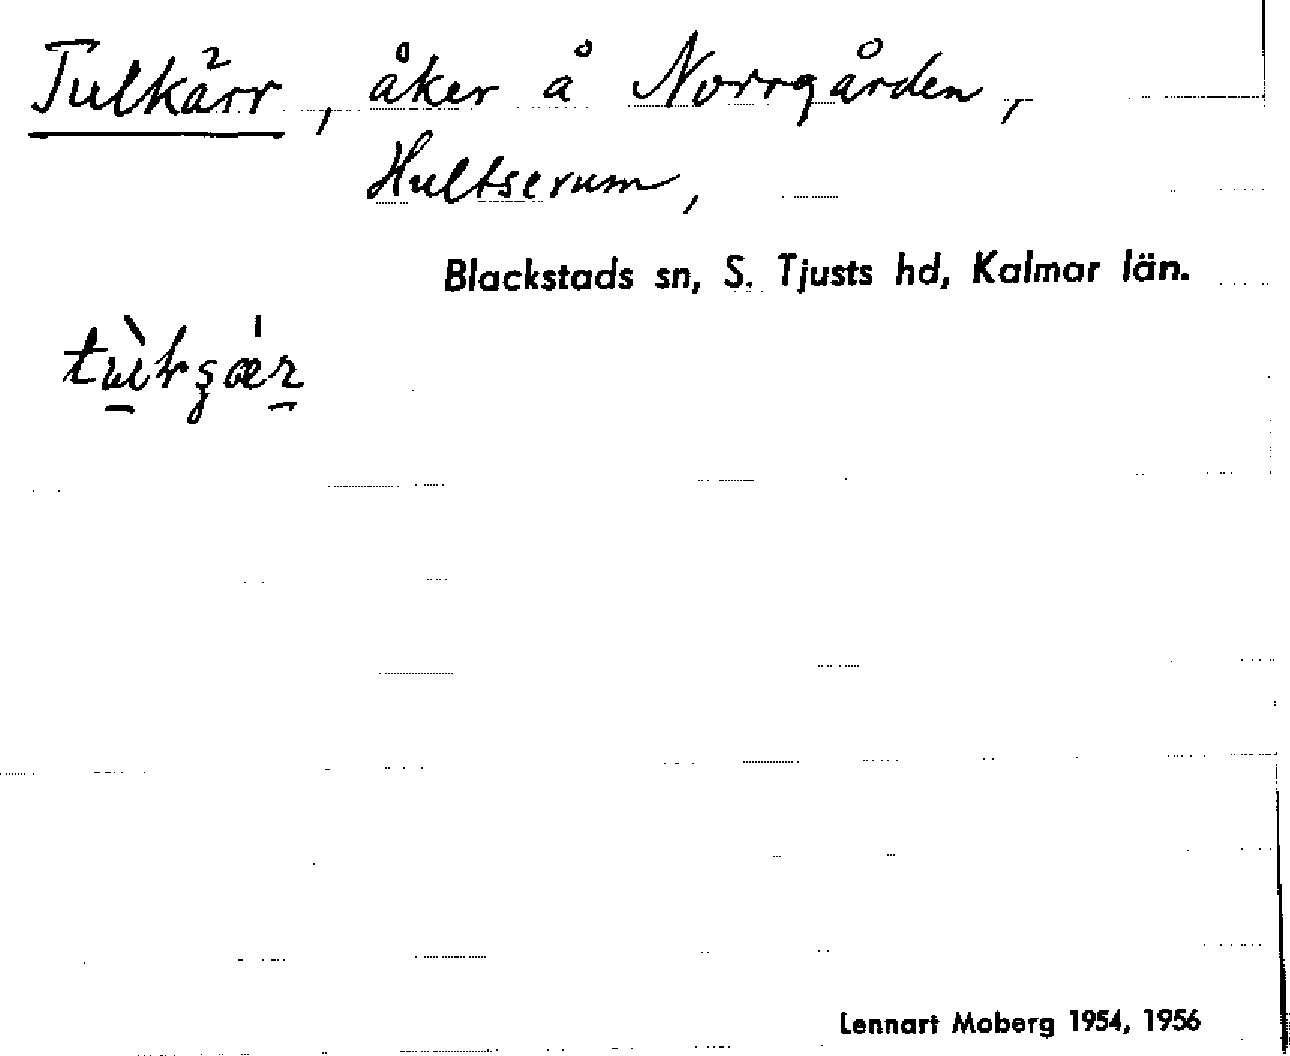 Tulkärr, åker å Norrgården,
Hultserum,
Blackstads sn, S. Tjusts hd, Kalmar län.
Lennart Moberg 1954, 1956